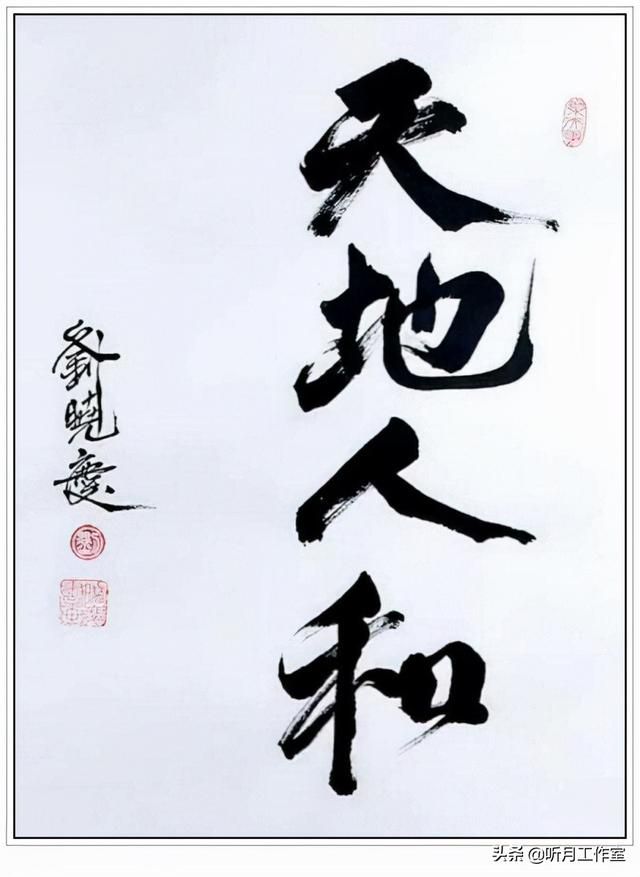 天地人和
劉曉慶
头条 @听月工作室